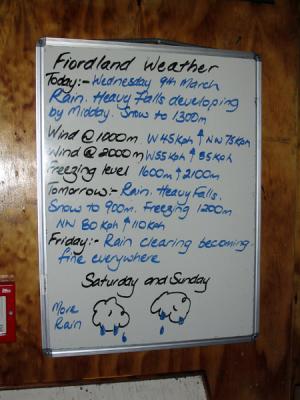 Fiordland Weather
Today:- Wednesday 9th March
Rain. Heavy Falls developing
by Midday. Snow to 1300m
Wind @ 1000m W 45kph ↑ NW 75kph
Wind @ 2000m W 55kph ↑ 85kph
Freezing level 1600m ↑ 2100m
Tomorrow:- Rain. Heavy Falls.
Snow to 900m. Freezing 1200m
NW 80 Kph ↑ 110kph
Friday:- Rain clearing becoming
fine everywhere
Saturday and Sunday
More
Rain